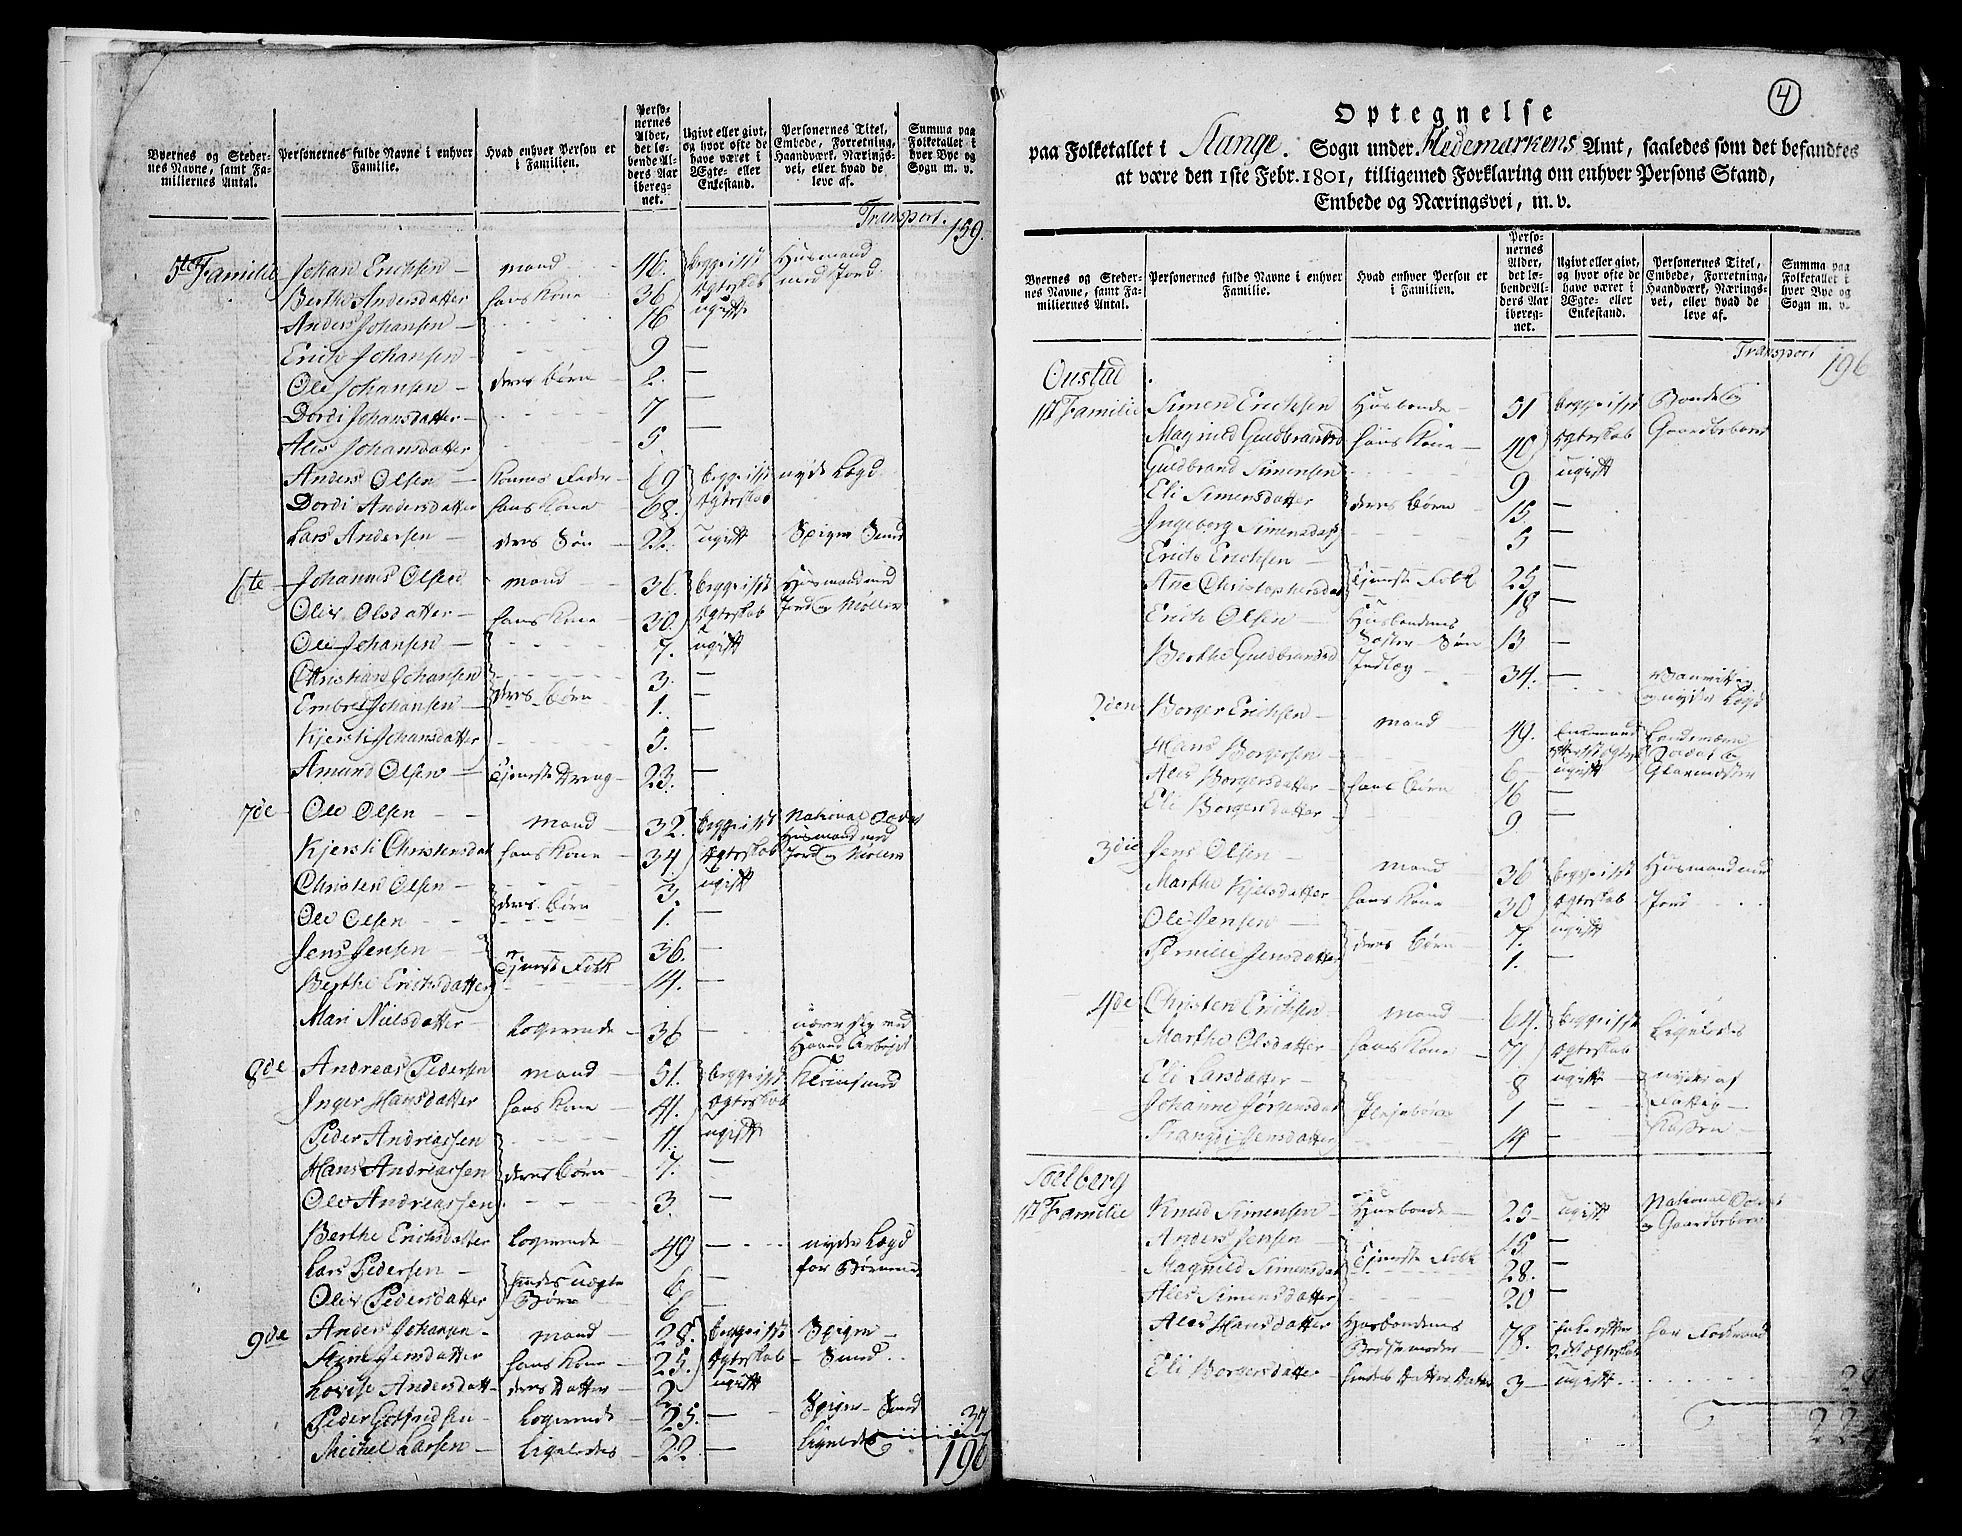 Byernes og Steder- Personernes fulde Navne i enhver Hvad enhver Person er Perso- Ugivt eller givt, Personernes Titel, Summa paa
nes Navne, samt Fa- Familie. i Familien. nernes og hvor ofte de Embede, Forretning, Folketallet i
milliernes Antal. Alder, den lø- have været i Haandværk, Nærings- hver Bye og
bende Al- Ægte- eller vei, eller hvad de Sogn m. v.
ders Aar Enkestand. leve af.
iberegnet.
Transport. 159.
5te Familie Johan Erichsen mand 46. begge i 1ste Huusmand
Berthe Andersdatter hans Kone 36 Ægteskab med Jord
Anders Johansen 16 ugivt
Erich Johansen 9 —
Ole Johansen deres børn 2. —
Dordi Johansdatter 7 —
Ales Johansdatter 5 —
Anders Olsen Konens Fader 69 begge i 1ste nyde Lægd
Dordi Andersdatter hans Kone 68. Ægteskab
Lars Andersen deres Søn 22. ugivt Spiger Smed
6te Johannes Olsen mand 36. begge i 1ste Huusmand med
Olea Olsdatter hans Kone 30. Ægteskab Jord og Møller
Ole Johansen 7. ugivt
Christian Johansen 3. —
Embret Johansen deres børn 1. —
Kjersti Johansdatter 5. —
Amund Olsen Tjeneste Dreng 23. —
7de Ole Olsen mand 32. begge i 1ste National Soldat
Kjersti Christensdat hans Kone 34 Ægteskab Huusmand med Jord og Møller
Christen Olsen 3. ugivt
Ole Olsen deres børn 1. —
Jens Jensen 36. —
Berthe Erichsdatter Tjeneste Folk 14. —
Mari Nielsdatter Logerende 36 — nærer sig ved
Haand Arbejde
8de Andreas Pedersen mand 51. begge i 1ste Kleinsmed
Inger Hansdatter hans Kone 41. Ægteskab
Peder Andreassen 11. ugivt
Hans Andreassen deres børn 7. —
Ole Andreassen 3. —
Berthe Erichsdatter Logerende 49 — nyder Lægd
Lars Pedersen hendes uægte 6 — for Børnene
Olea Pedersdatter Børn 6 —
9de Anders Johansen mand 28. begge i 1ste Spiger
Stine Jensdatter hans Kone 25. Ægteskab Smed
Lovise Andersdatt deres Datter 2 ugivt
Peder Gotfredsen Logerende 25. — Spiger Smed 37
Michel Larsen Ligeledes 22 — Ligeledes 196
4
Optegnelse
paa Folketallet i Stange. Sogn under Hedemarkens Amt, saaledes som det befandtes
at være den 1ste Febr. 1801, tilligemed Forklaring om enhver Persons Stand,
Embede og Næringsvei, m. v.
Byernes og Steder- Personernes fulde Navne i enhver Hvad enhver Person er Perso- Ugivt eller givt, Personernes Titel, Summa paa
nes Navne, samt Fa- Familie. i Familien. nernes og hvor ofte de Embede, Forretning, Folketallet i
milliernes Antal. Alder, det lø- have været i Haandværk, Nærings- hver Bye og
bende Al- Ægte- eller vei, eller hvad de Sogn m. v.
ders Aar Enkestand. leve af.
iberegnet.
Transport 196
Oustad
1st Familie Simen Erichsen Huusbonde 51 begge i 1ste Bonde og
Magnild Guldbrandsd hans Kone 40 Ægteskab Gaardbeboer
Guldbrand Simensen 9 ugivt
Eli Simensdatter deres Børn 15 —
Ingeborg Simensdatt 5 —
Erich Erichsen 25 —
Ane Christophersdat Tjeneste Folk 18 —
Erich Olsen Huusbondens Søster Søn 13 —
Berthe Guldbrandsd Indlæg 34. — Vanvittig
og nyder Lægd
2den Borger Erichsen mand 49. Enkemand
Hans Borgersen 6 ugivt
Ales Borgersdatter hans børn 16
Eli Borgersdatter 9 —
3die Jens Olsen mand 36 begge i 1ste Huusmand med
Marthe Kjelsdatter hans Kone 30 Ægteskab Jord
Ole Jensen 7. ugivt
Pernille Jensdatter deres børn 1. —
4de Christen Erichsen mand 64. begge i 1ste Ligeledes
Marthe Olsdatter hans Kone 71 Ægteskab
Eli Larsdatter 8 ugivt nyder af
Johanne Jørgensdat Plejebørn 1 — Fattig
Jensdatter 14 — Kassen
Soelberg
1st Familie Knud Simensen Huusbonde 25 ugivt National Soldat
og Gaardbeboer
Anders Jensen 15. —
Magnild Simensdat Tjeneste Folk 28. —
Ales Simensdatter 20 —
Ales Hansdatter Huusbondens 78. Enke efter har Foderaad
Bedstemoder Ægteskab
Eli Borgersdatter hendes Datter Datter 3 ugivt